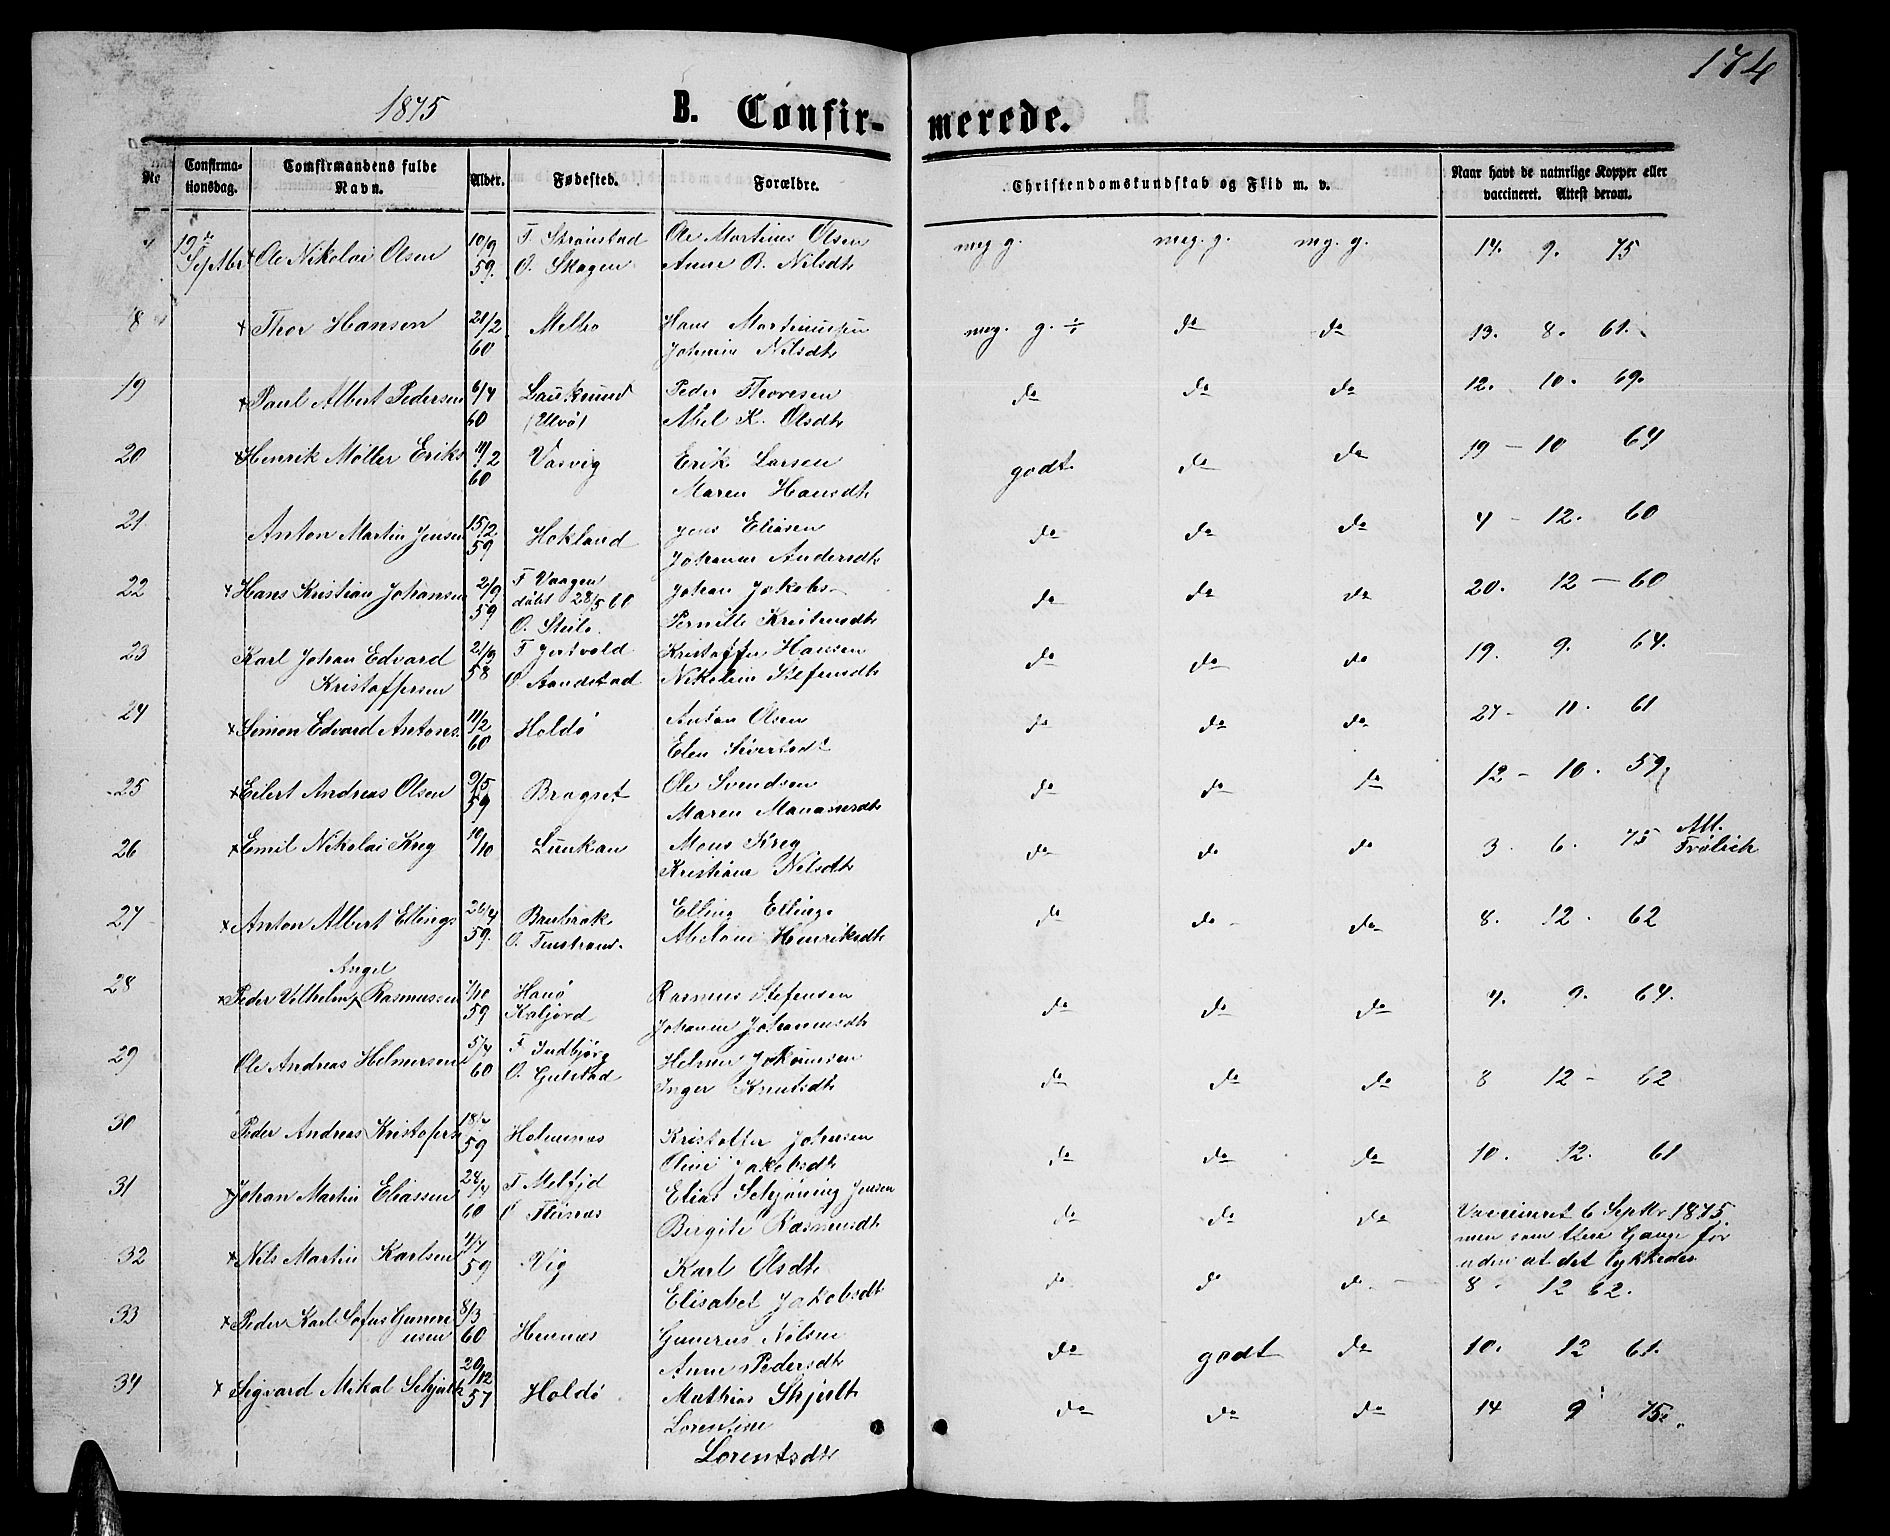 174
1875
B. Confir-
merede.
No
Confirma-
tionsdag.
Comfirmandens fulde
Navn.
Alder.
Fødested.
Forældre.
Christendomskundskab og Flid m. v.
Naar havt de naturlige Kopper eller
vaccineret. Attest derom.
19de Septbr + Ole Nikolai Olsen 10/9 F. Stronstad Ole Martinus Olsen meg g. meg. g. mg. g. 14. 9. 75
59. O. Skagen Anne B. Nilsdtr
8 + Thor Hansen 21/2 Melbo Hans Martinussen meg. g. ÷ do do 13. 8. 61.
60 Johanna Nilsdtr
19 + Paul Albert Pedersen 6/4 Lauksund Peder Thoresen do do do 12. 10. 69.
60 (Ulvø) Abel K. Olsdtr
20 + Henrik Møller Eriks 11/2 Vasvig Erik Larsen godt do do 19 - 10 64
60 Maren Hansdtr
21 Anton Martin Jensen 15/12 Hokland Jens Eliasen do do do 4 - 12. 60
59 Johanna Andersdtr
22 + Hans Kristian Johansen 2/9 F Vaagen Johan Jakobs do do do 20. 12 - 60
59 døbt 28/5 60 Pernille Kristensdtr
O. Steilo.
23 Karl Johan Edvard 21/9 F Jertvold Kristoffer Hansen do do do 19. 9. 64.
Kristoffersen 58 O Sandstad Nikoline Stefensdtr
24 + Simon Edvard Antons. 11/2 Holdø Anton Olsen do do do 27- 11. 61
60 Elen Sivertsdtr
25 + Eilert Andreas Olsen 9/5 Brogset Ole Svendsen do do do 12 - 10. 59
59 Maren Manassesdtr
26 + Emil Nikolai Kreg 10/10 Luukan Mons Kreg do do do 3. 6. 75 Att.
Kristiane Nilsdtr Frølich
27 + Anton Albert Ellings 26/4 Brubrok Elling Ellings do do do 8. 12. 62
59. O. Finstrans. Abelone Henriksdtr
Angel
28 + Peder Velhelm Rasmussen 7/10 Hanø Rasmus Stefensen do do do 4. 9. 64.
59 Kaljord Johanna Johannesdtr
29 Ole Andreas Helmersen 5/4 F Indbjørg Helmer Johannesen do do do 8 12 - 62
60 O. Gulstad Inger Knutsdtr
30 Peder Andreas Kristofers 18/2 Holmnes Kristoffer Johnsen do do do 10. 12. 61
59 Oline Jakobsdtr
31 + Johan Martin Eliassen 24/4 F Melfjd Elias Schjøning Jensen do do do Vaccineret 6 Septbr 1875.
60 O Flesnes Birgite Rasmusdtr men som flere Gange før
uden at det lykkedes
32 + Nils Martin Karlsen 4/7 Vig Karl Olsdtr do do do 8. 12 62.
59 Elisabet Jakobsdtr
33 + Peder Karl Sofus Guneri 8/3 Hennes Gunerus Nilsen do godt do 10. 12 61.
usen 60 Anne Pedersdtr
34 + Sigvard Mikal Schjult 20/12 Holdø Mathias Skjult do do do 14 9 75.
57 Lorentine
Lorentsdtr